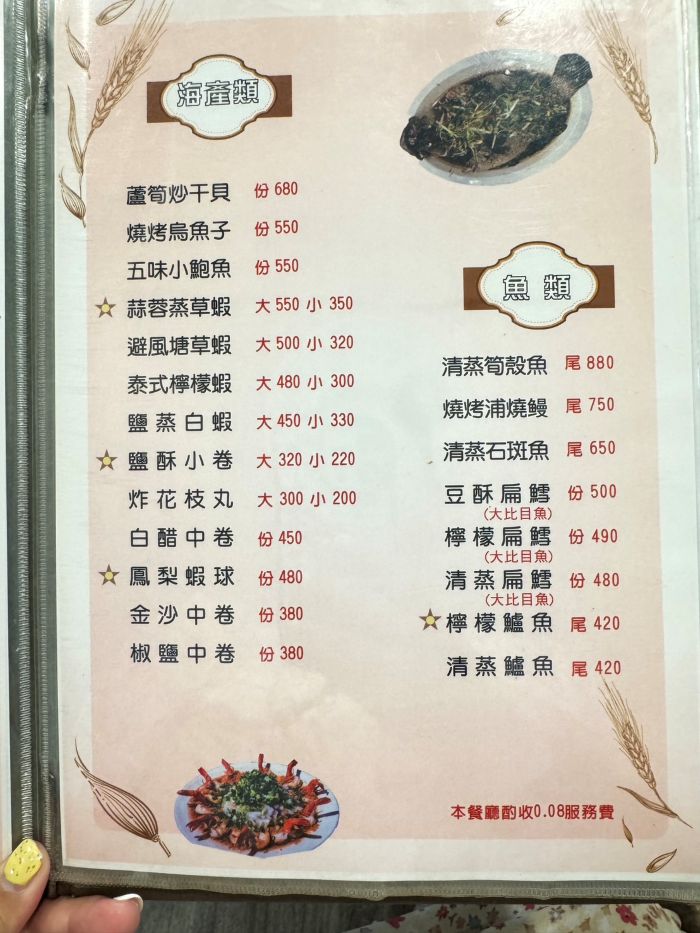 海產類
蘆筍炒干貝 份 680
燒烤烏魚子 份 550
五味小鮑魚 份 550
蒜蓉蒸草蝦 大 550 小 350
避風塘草蝦 大 500 小 320
泰式檸檬蝦 大 480 小 300
鹽蒸白蝦 大 450 小 330
鹽酥小卷 大 320 小 220
炸花枝丸 大 300 小 200
白醋中卷 份 450
鳳梨蝦球 份 480
金沙中卷 份 380
椒鹽中卷 份 380
魚類
清蒸筍殼魚 尾 880
燒烤浦燒鰻 尾 750
清蒸石斑魚 尾 650
豆酥扁鱈 份 500
(大比目魚)
檸檬扁鱈 份 490
(大比目魚)
清蒸扁鱈 份 480
(大比目魚)
檸檬鱸魚 尾 420
清蒸鱸魚 尾 420
本餐廳酌收0.08服務費